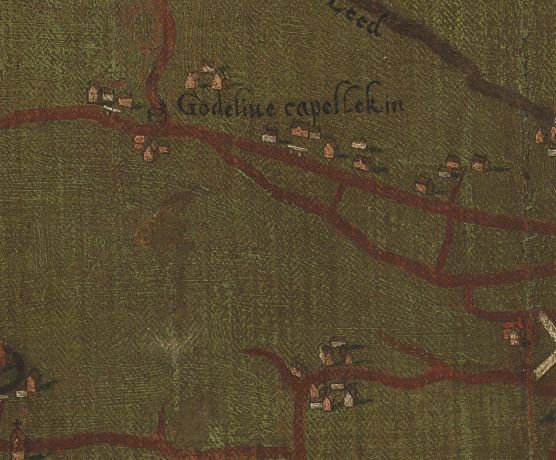 Leed
Godeliue capellekin